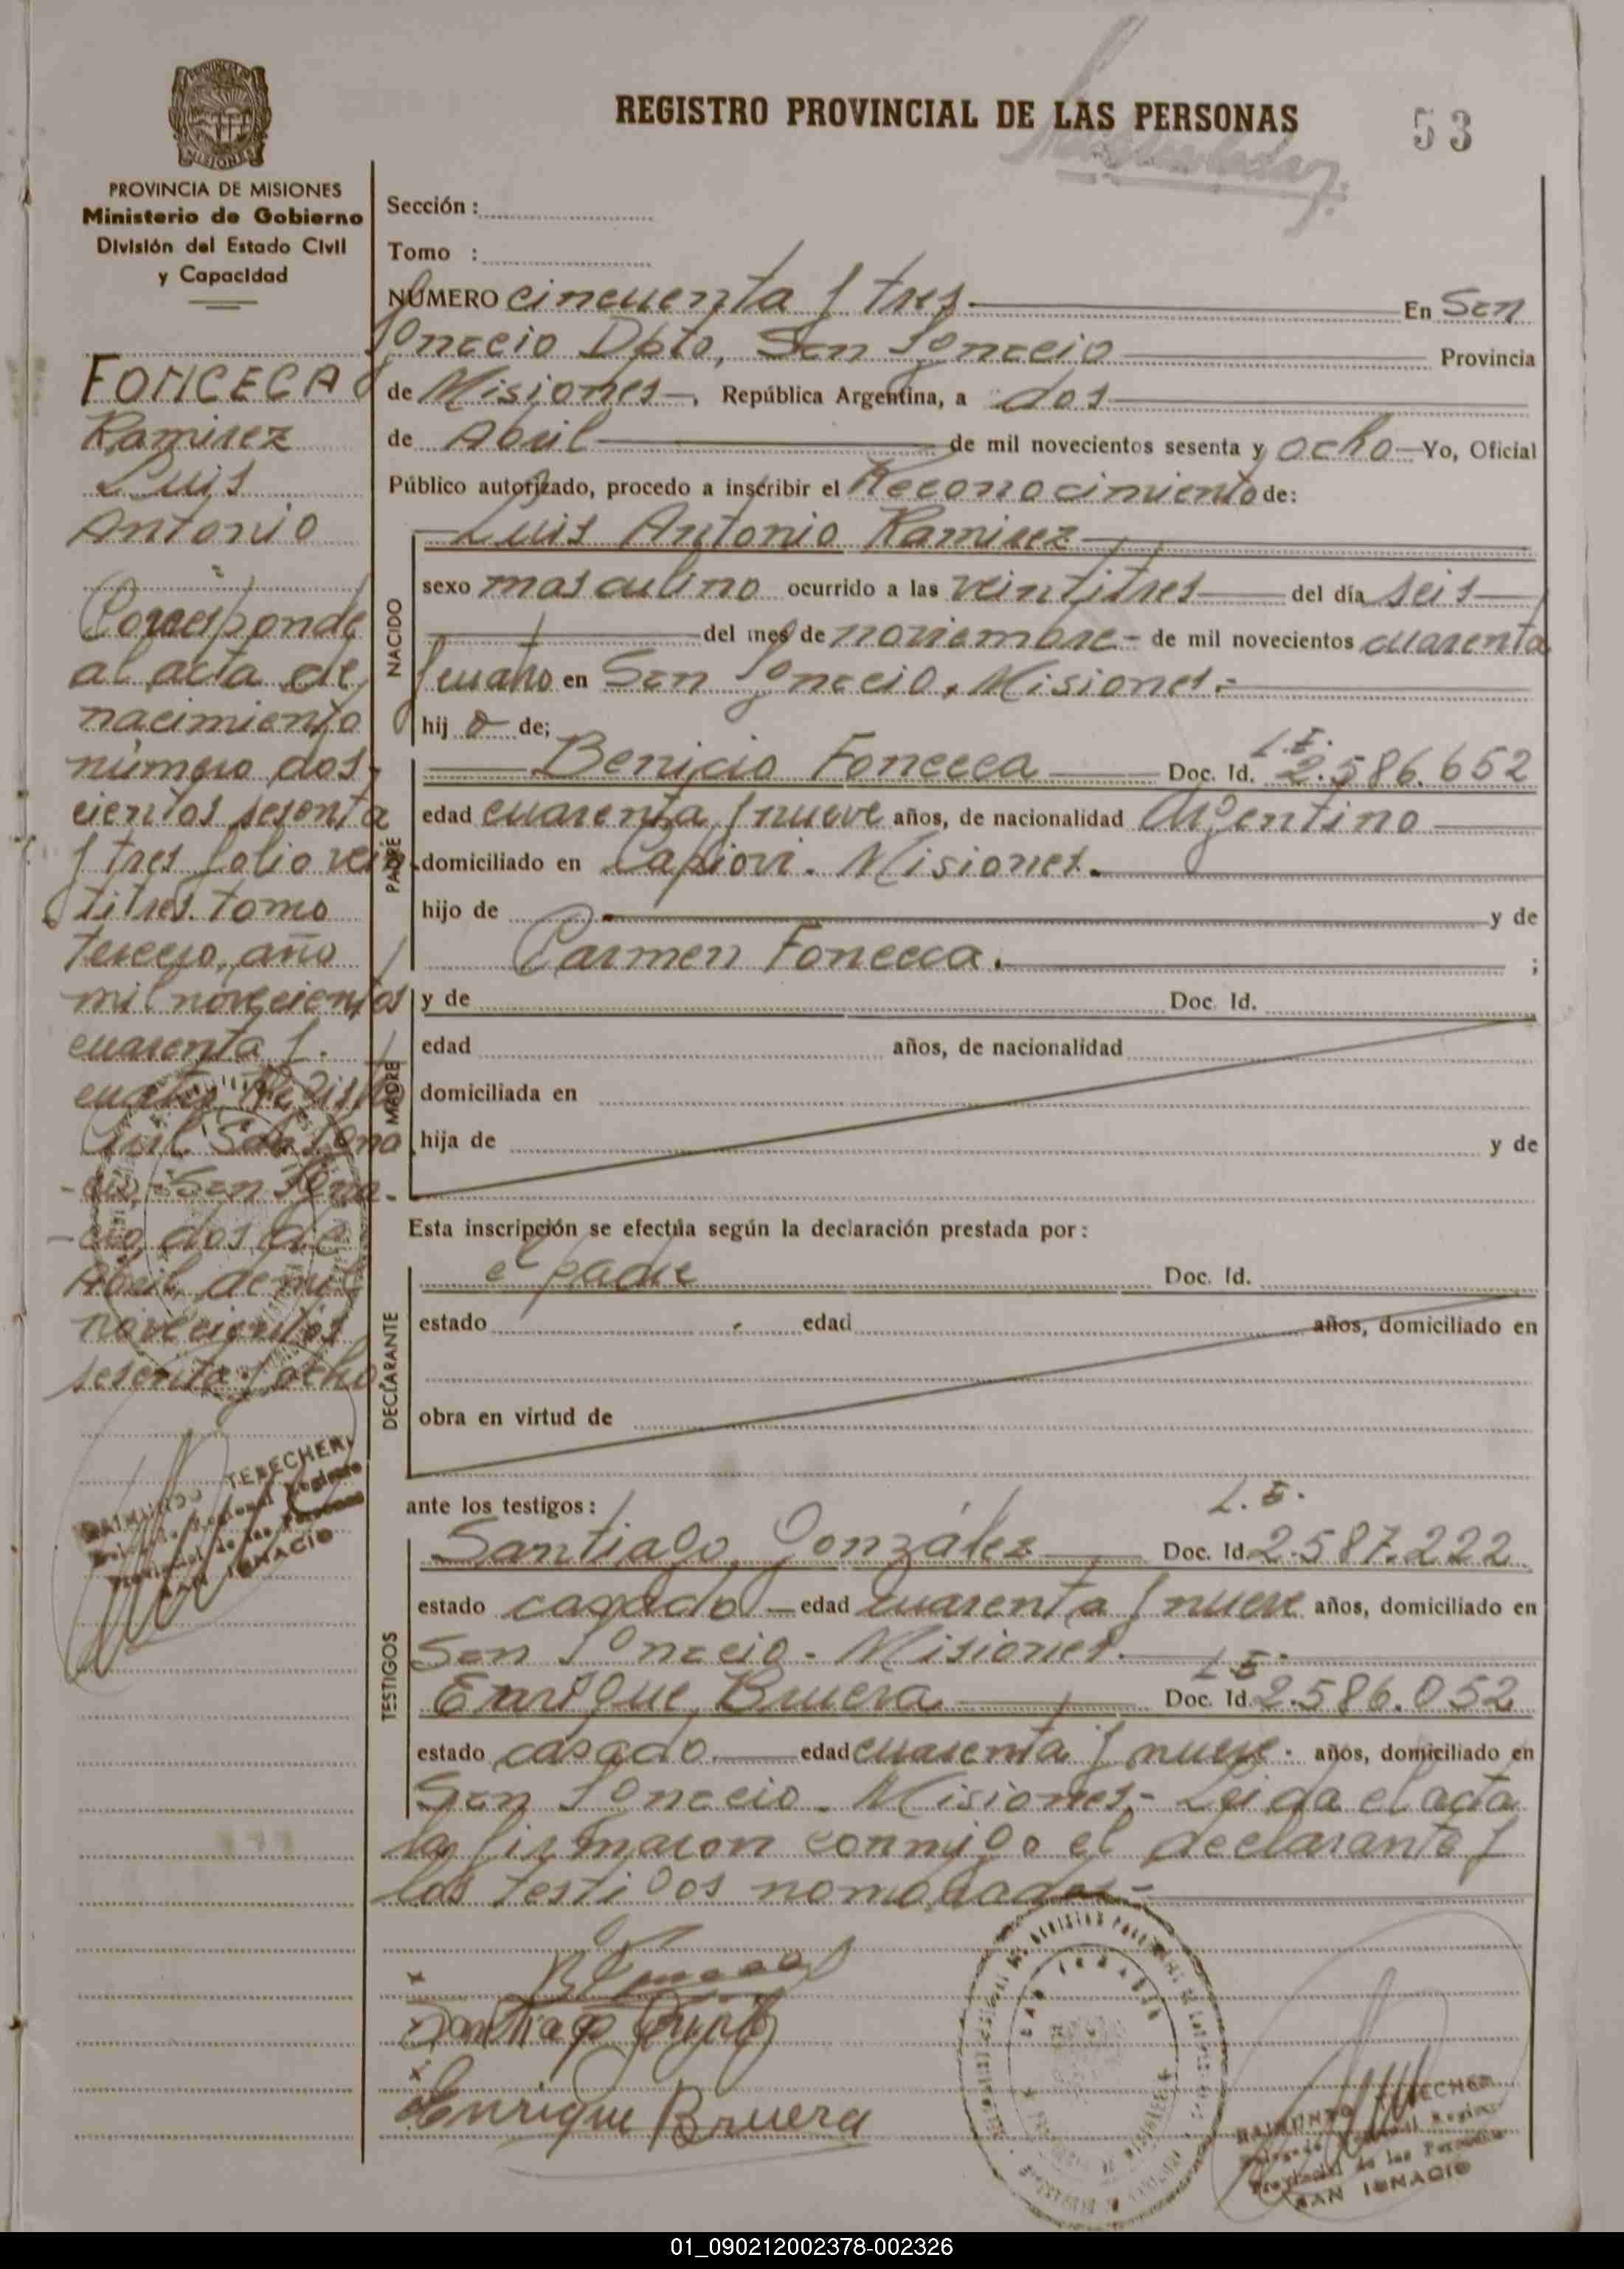 REGISTRO PROVINCIAL DE LAS PERSONAS
53
PROVINCIA DE MISIONES
Ministerio de Gobierno
División del Estado Civil
y Capacidad
FONCECA
Ramirez
Luis
Antonio
Corresponde
al acta de
nacimiento
número dos-
cientos sesenta
y tres folio vein
titres. tomo
tercero, año
mil novecientos
cuarenta y
cuatro Registro
Civil San Igna
-cio, San Igna-
-cio, dos de
Abril de mil
novecientos
sesenta y ocho
RAIMUNDO TERECHER
Provincial de las Personas
SAN IGNACIO
Sección :
Tomo :
NÚMERO cincuenta y tres En San
Ignacio Dpto, San Ignacio Provincia
de Misiones-, República Argentina, a dos
de Abril de mil novecientos sesenta y ocho-Yo, Oficial
Público autorizado, procedo a inscribir el Reconocimiento de:
Luis Antonio Ramirez
NACIDO
sexo masculino ocurrido a las veintitres del día seis
del mes de noviembre- de mil novecientos cuarenta
y cuatro en San Ignacio, Misiones.-
hij o de;
PADRE
Benicio Fonceca Doc. Id. L.E. 2.586.652
edad cuarenta y nueve años, de nacionalidad Argentino
domiciliado en Capiovi. Misiones.
hijo de y de
Carmen Fonceca. ;
MADRE
y de Doc. Id.
edad años, de nacionalidad
domiciliada en
hija de y de
Esta inscripción se efectúa según la declaración prestada por :
DECLARANTE
el padre Doc. Id.
estado edad años, domiciliado en
obra en virtud de
ante los testigos :
TESTIGOS
Santiago González Doc. Id. L.E. 2.587.222
estado casado - edad cuarenta y nueve años, domiciliado en
San Ignacio - Misiones.
Enrique Bruera Doc. Id. L.E. 2.586.052
estado casado. edad cuarenta y nueve. años, domiciliado en
San Ignacio. Misiones.- Leida el acta
la firmaron conmigo el declarante y
los testigos nombrados-
Enrique Bruera
RAIMUNDO TERECHER
Provincial de las Personas
SAN IGNACIO
01_090212002378-002326